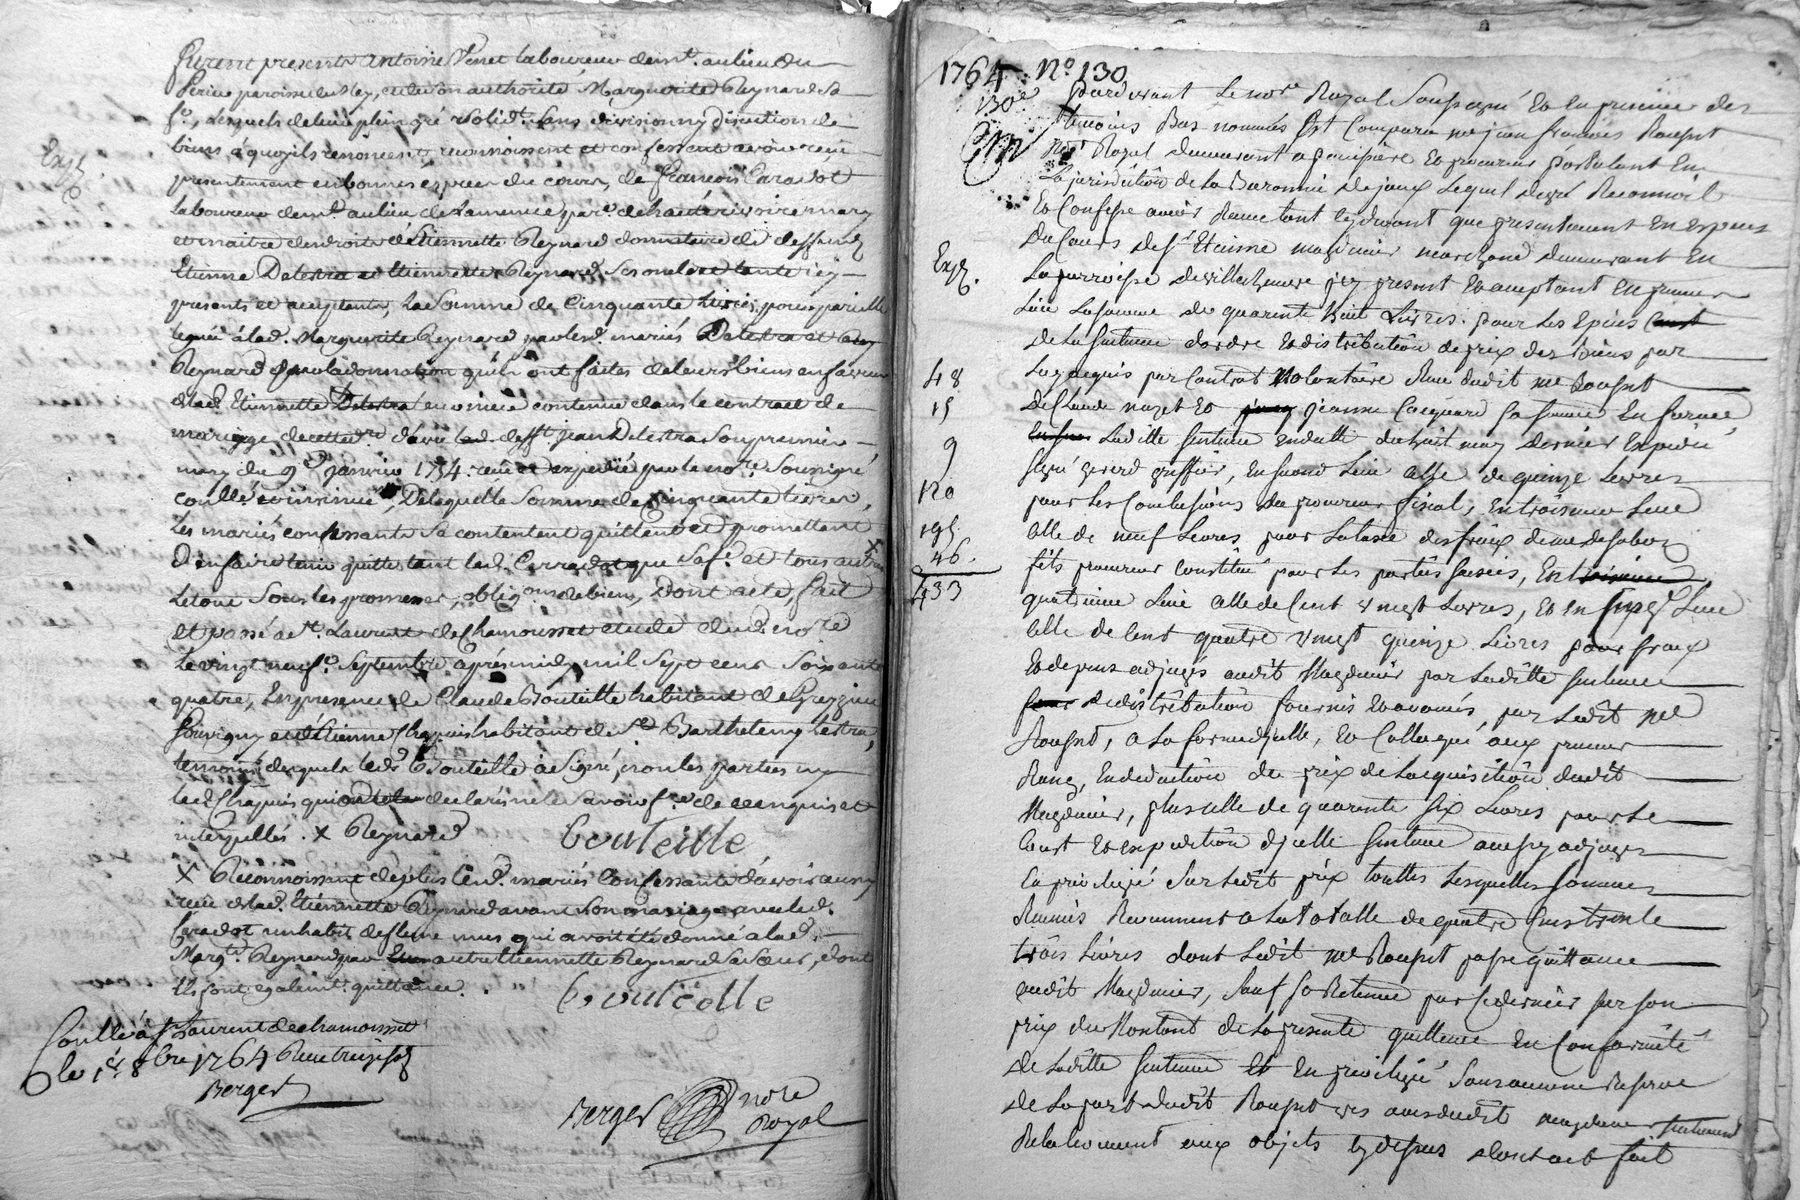 furent presents antoine Venet laboureur demt. au lieu du
Perieu paroisse du Rey, et de son authorité Marguerite Reynard sa
fe., lesquels de leur plein gré solidt. sans division ny discution de
biens à quoy ils renoncent reconnoissent et confessent avoir reçu
Expé
presentement en bonnes especes du cours, de françois Caradot
laboureur demt. au lieu de Lamence parse. de hauterivoire mary
et maitre des droits d'Etiennette Reynard donnataire de deffunts
Etienne Delestra et Etiennette Reynard ses oncle et tante icy
presents et acceptants, la somme de Cinquante Livres, pour pareille
leguée à lad. Marguerite Reynard par lesd. mariés Delestra et
Reynard par la donnation qu'ils ont faites de leurs biens en faveur
de lad. Etiennette contenue dans le contract de
mariage de cette dre. avec led. defft. jean Delestra son premier
mary du 9e. janvier 1754. reçu et expedié par le nore. soussigné
conllé insinué, De laquelle somme de cinquante livres,
les mariés confessants se contentent quittent et promettent
D'en faire tenir quitte tant led. Carradot que sa fe. et tous autres X
Letout sous les promesses, obligons. de biens, Dont acte, fait
et passé a st. Laurent de Chamousset etude dud. nore
Le vingt neuf. Septembre après midy mil sept cent soixante
quatre, En presence de Claude Bouteille habitant de Grezieu
Souvigny et d'Etienne Chapuis habitant de St. Barthelemy Lestra,
temoins desquels led. Bouteille a signé, non les parties ny
led. Chapuis qui ont declaré ne le savoir fe. de ce enquis et
interpellés. X Reynard
bouteille
X Reconnoissent de plus lesd. mariés Confessants d'avoir aussy
reçu de lad. Etiennette Reynard avant son mariage avec led.
Caradot un habit de femme qui avoit été donné à lad.
Margte. Reynard par autre Etiennette Reynard sa sœur, dont
Ils font egalemt. quittance.
bouteille
Conllé à st Laurent de chamousset
le 1er. 8bre 1764 Reçu treize sols
Berger
Berger nore Royal
1764 No. 130
130e
Pardevant Le nore Royal Soussigné Et En presence des
temoins Bas nommés Est Comparu me jean françois Roupnt
nore Royal demeurant a pompiere Et procureur postulant En
La jurisdiction de la Baronnie de joux Lequel de gré Reconnoit
Et Confesse avoir Reçu tant cydevant que presentement En especes
Du Cours de sr. Etienne magdinier marchand demeurant En
Expé.
La parroisse de villecheneve icy present Et acceptant En premier
Lieu La somme de quarente huit Livres. pour Les Epices
De La sentence dordre Et distribution de prix des biens par
48
Luy acquis par Contrat volontaire Reçu dudit me Roupnt
15
De Claude nozet Et jeanne Coquard sa femme En
9
Ladite sentence endatte du huit may dernier Expedié
signé gerard greffier, En second Lieu Celle de quinze Livres
120
pour Les Conclusions du procureur fiscal, En troisieme Lieu
195
Celle de neuf Livres pour La taxe des fraix de me desaboz
46.
fils procureur Constitué pour Les parties saisies, En
433
quatrieme Lieu Celle de Cent vingt Livres, Et En Cinqe. Lieu
Celle de Cent quatre vingt quinze Livres pour fraix
Et depens adjugés audit Magdinier par Laditte sentence
de distribution fournis Et avancés, par Ledit me
Roupnt, a La forme d'icelle, Et Colloqué aux premier
Rang, En deduction du prix de Lacquisition dudit
Magdinier, plus celle de quarente six Livres pour Le
Cout Et expedition d'icelle sentence aussy adjugée
En privilegié Sur Ledit prix touttes Lesquelles sommes
Reunis Reviennent a La totalle de quatre Cens trente
trois Livres dont Ledit me Roupnt passe quittance
audit Magdinier, Sauf sa Retenue par ce dernier sur son
prix du Montant de La presente quittance En Conformité
De Laditte sentence Et En privilegié Sans aucune Reserve
De La part dudit Roupnt vis avis dudit magdinier
Relativement aux objets cy dessus dont acte fait